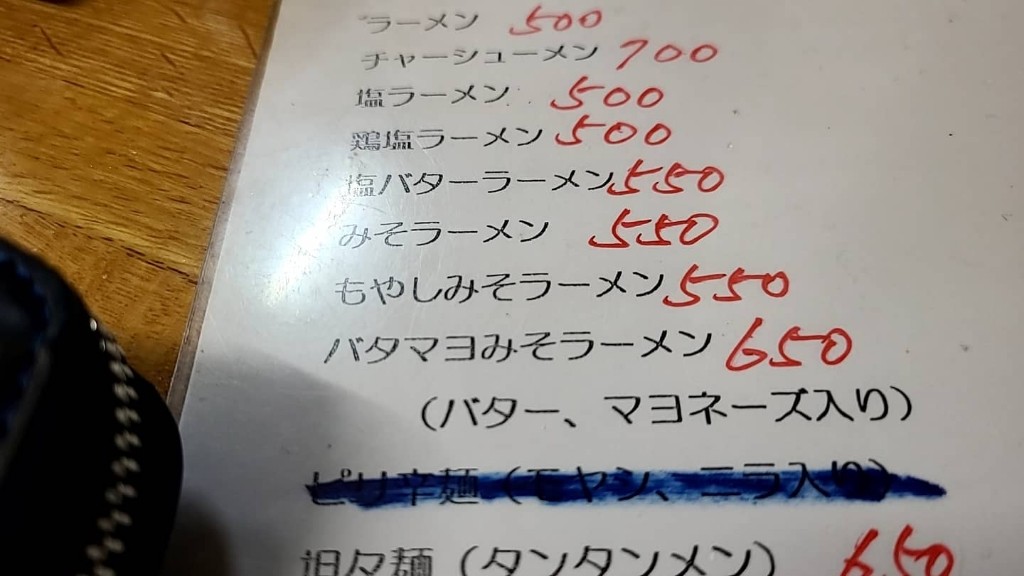 ラーメン 500
チャーシューメン 700
塩ラーメン 500
鶏塩ラーメン 500
塩バターラーメン 550
みそラーメン 550
もやしみそラーメン 550
バタマヨみそラーメン 650
(バター、マヨネーズ入り)
ピリ辛麺(モヤシ、ニラ入り)
坦々麺(タンタンメン) 650